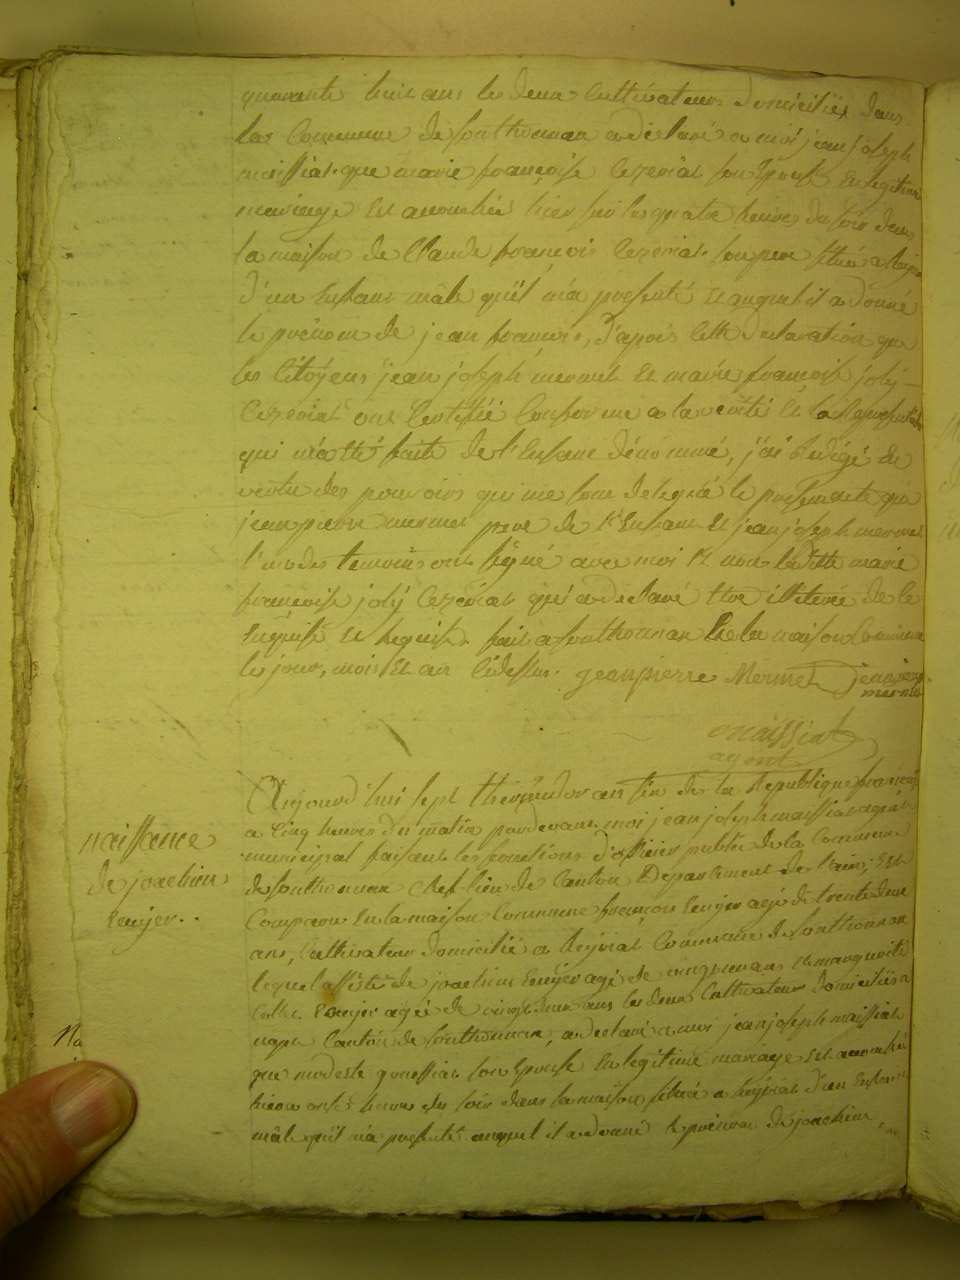 quarante huit ans les deux Cultivateurs domiciliés dans
la Commune de Sonthonnax a déclaré a moi jean joseph
maissiat que marie françoise Cezeriat son Epouse En legitime
mariage Est accouchée hier sur les quatre heures du soir dans
la maison de Claude françois Cezeriat son pere située a
d'un Enfant mâle qu'il m'a presenté Et auquel il a donné
le prénom de jean francois, d'après cette declaration que
les Citoyens jean joseph mermet Et marie françoise joly
Cezeriat ont Certifié Conforme a la vérité Et la Representation
qui m'a été faite de l'Enfant dénommé, j'ai Redigé En
vertu des pouvoirs qui me sont delegués le present acte que
jean pierre mermet pere de l'Enfant Et jean joseph mermet
l'un des temoins ont signé avec moi Et non laditte marie
françoise joly Cezeriat qui a declaré Etre illiterée de ce
Enquise Et Requise. fait a Sonthonnax En la maison Commune
les jour, mois Et an Cidessus. jean pierre Mermet jean joseph
mermet
maissiat
agent
naissance
de joachim
Enujer..
Aujourd'hui sept thermidor an six de la Republique française
a Cinq heures du matin pardevant moi jean joseph maissiat agent
municipal faisant les fonctions d'officier public de la Commune
de Sonthonnax Chef-lieu de Canton Departement de l'ain, Est
Comparu En la maison Commune françois Enujer agé de trente deux
ans, Cultivateur domicilié a heyriat Commune de Sonthonnax
lequel assisté de joachim Enujer agé de ans Et marguerite
Enujer agée de vingt deux ans les deux Cultivateurs domiciliés a
Canton de Sonthonnax, a declaré a moi jean joseph maissiat
que modeste goussiat son Epouse En legitime mariage Est accouchée
hier a onze heures du soir dans la maison située a heyriat d'un Enfant
mâle qu'il m'a presenté auquel il a donné le prénom de joachim,
Na